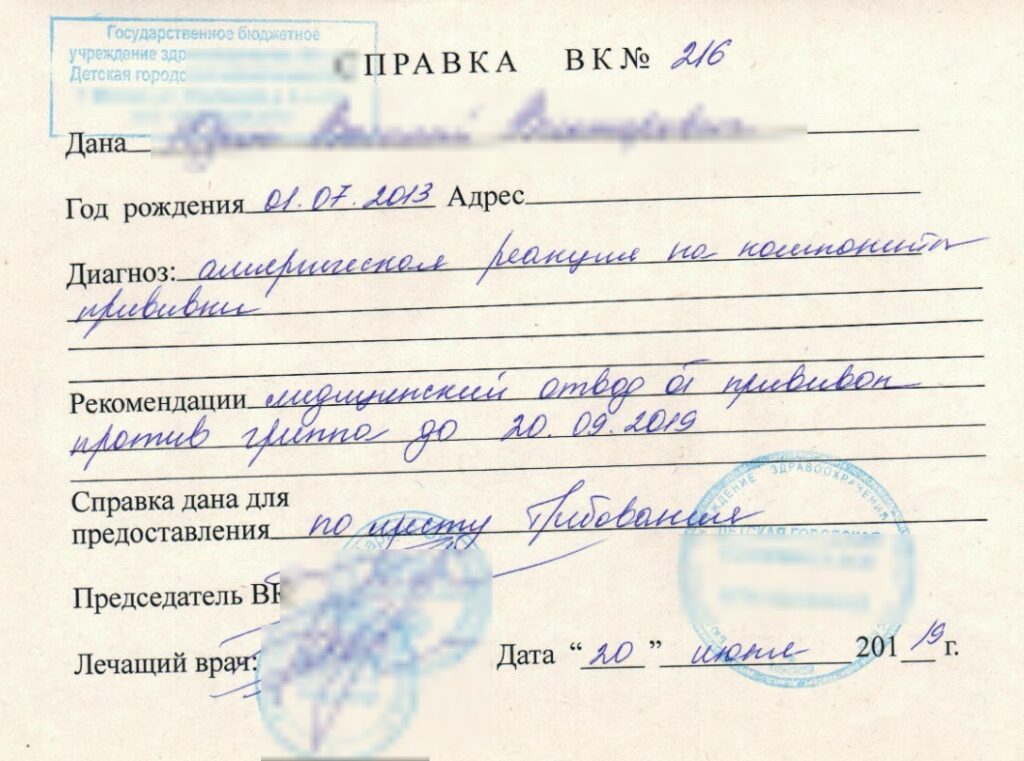 Государственное бюджетное
учреждение здр
Детская городс
СПРАВКА ВК№ 216
Дана
Год рождения 01.07.2013 Адрес
Диагноз: аллергическая реакция на компоненты
прививки
Рекомендации медицинский отвод от прививок
против гриппа до 20.09.2019
Справка дана для
предоставления по месту Требования
ЖДЕНИЕ ЗДРАВООХРАНЕНИЯ
ДЕТСКАЯ ГОРОДСКАЯ
Председатель ВК
Лечащий врач: Дата “20” июня 2019 г.